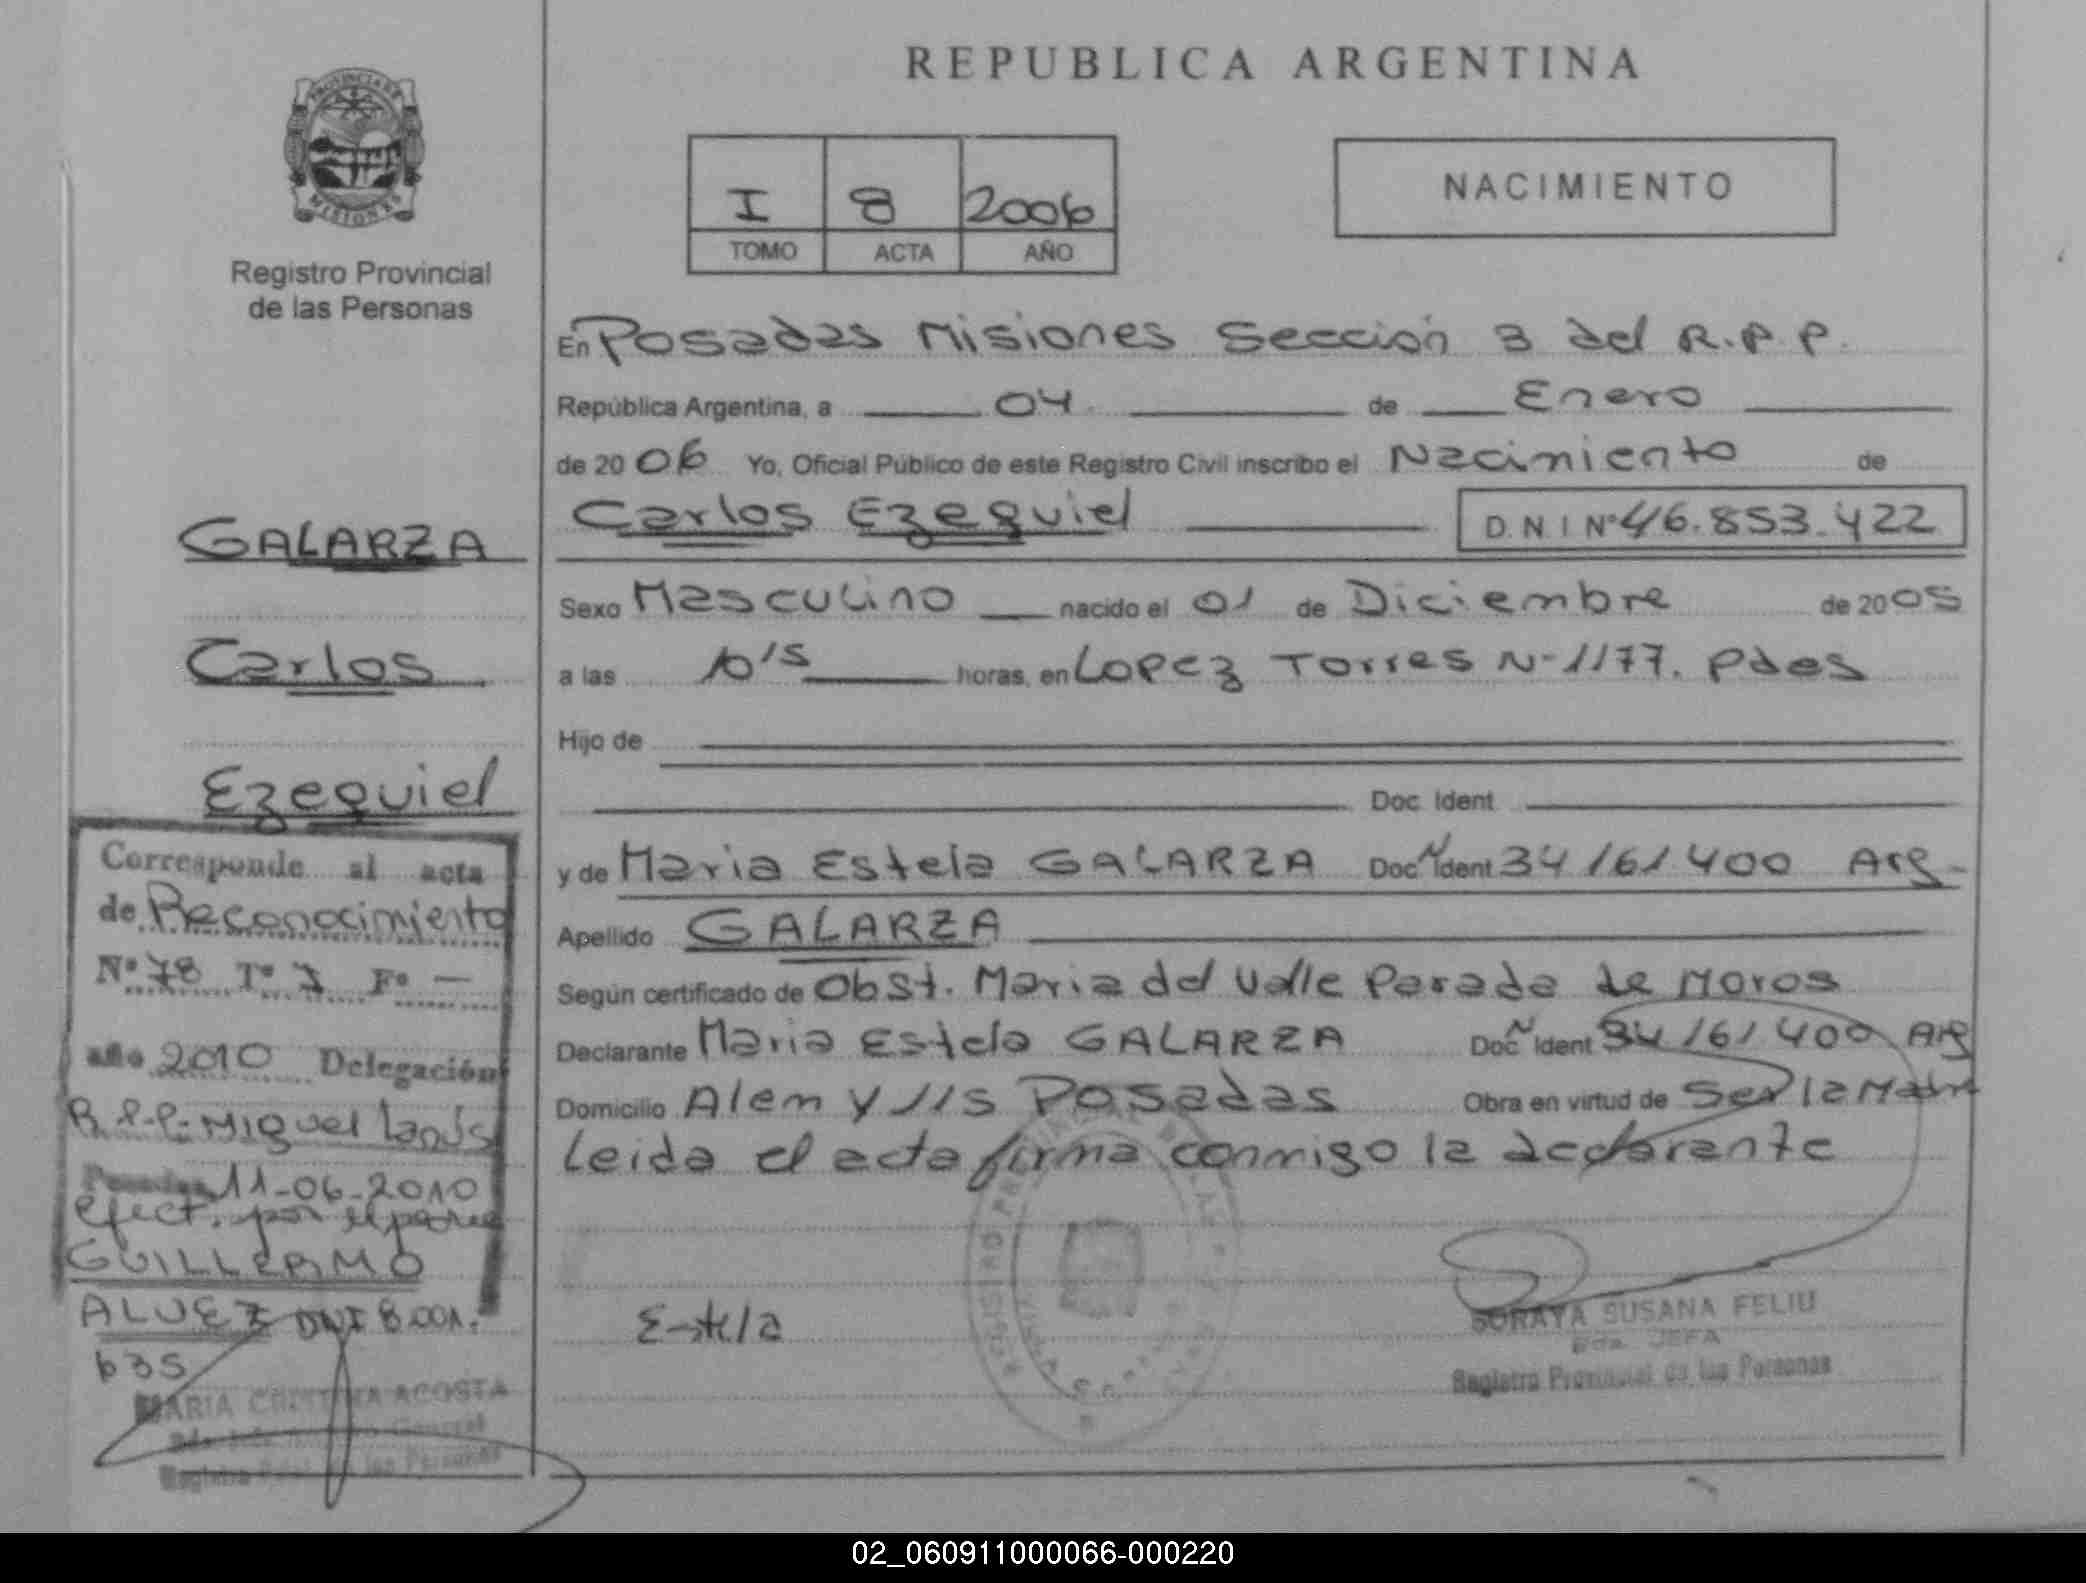 REPUBLICA ARGENTINA
PROVINCIA DE MISIONES
Registro Provincial
de las Personas
I 8 2006
TOMO ACTA AÑO
NACIMIENTO
En Posadas Misiones Sección 3 del R.P.P.
República Argentina, a 04 de Enero
de 2006 Yo, Oficial Público de este Registro Civil inscribo el Nacimiento de
Carlos Ezequiel D.N.I Nº 46.853.422
Sexo Masculino nacido el 01 de Diciembre de 2005
a las 10'15 horas, en Lopez Torres N-1177. Pdas
Hijo de
Doc. Ident
y de Maria Estela GALARZA Doc. Ident N 34161400 Arg
Apellido GALARZA
Según certificado de Obst. Maria del Valle Parada de Moros
Declarante Maria Estela GALARZA Doc. Ident N 34161400 Arg
Domicilio Alem y 115 Posadas Obra en virtud de Ser la Madre
Leida el acta firma conmigo la declarante
Estela
SORAYA SUSANA FELIU
JEFA
Registro Provincial de las Personas
GALARZA
Carlos
Ezequiel
Corresponde al acta
de Reconocimiento
Nº 78 Tº 1 Fº —
año 2010 Delegación
R.P.P. Miguel Lanús
Posadas 11-06-2010
efect. por el padre
GUILLERMO
ALVEZ DNI 8.001.
635
MARIA CRISTINA ACOSTA
General
Registro Provincial de las Personas
02_060911000066-000220